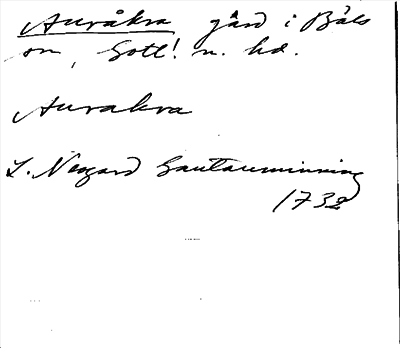 Auråkra gård i Bäls
sn, Gotl. n. hd.
Aurakra
L. Neogard Gautauminning
1732